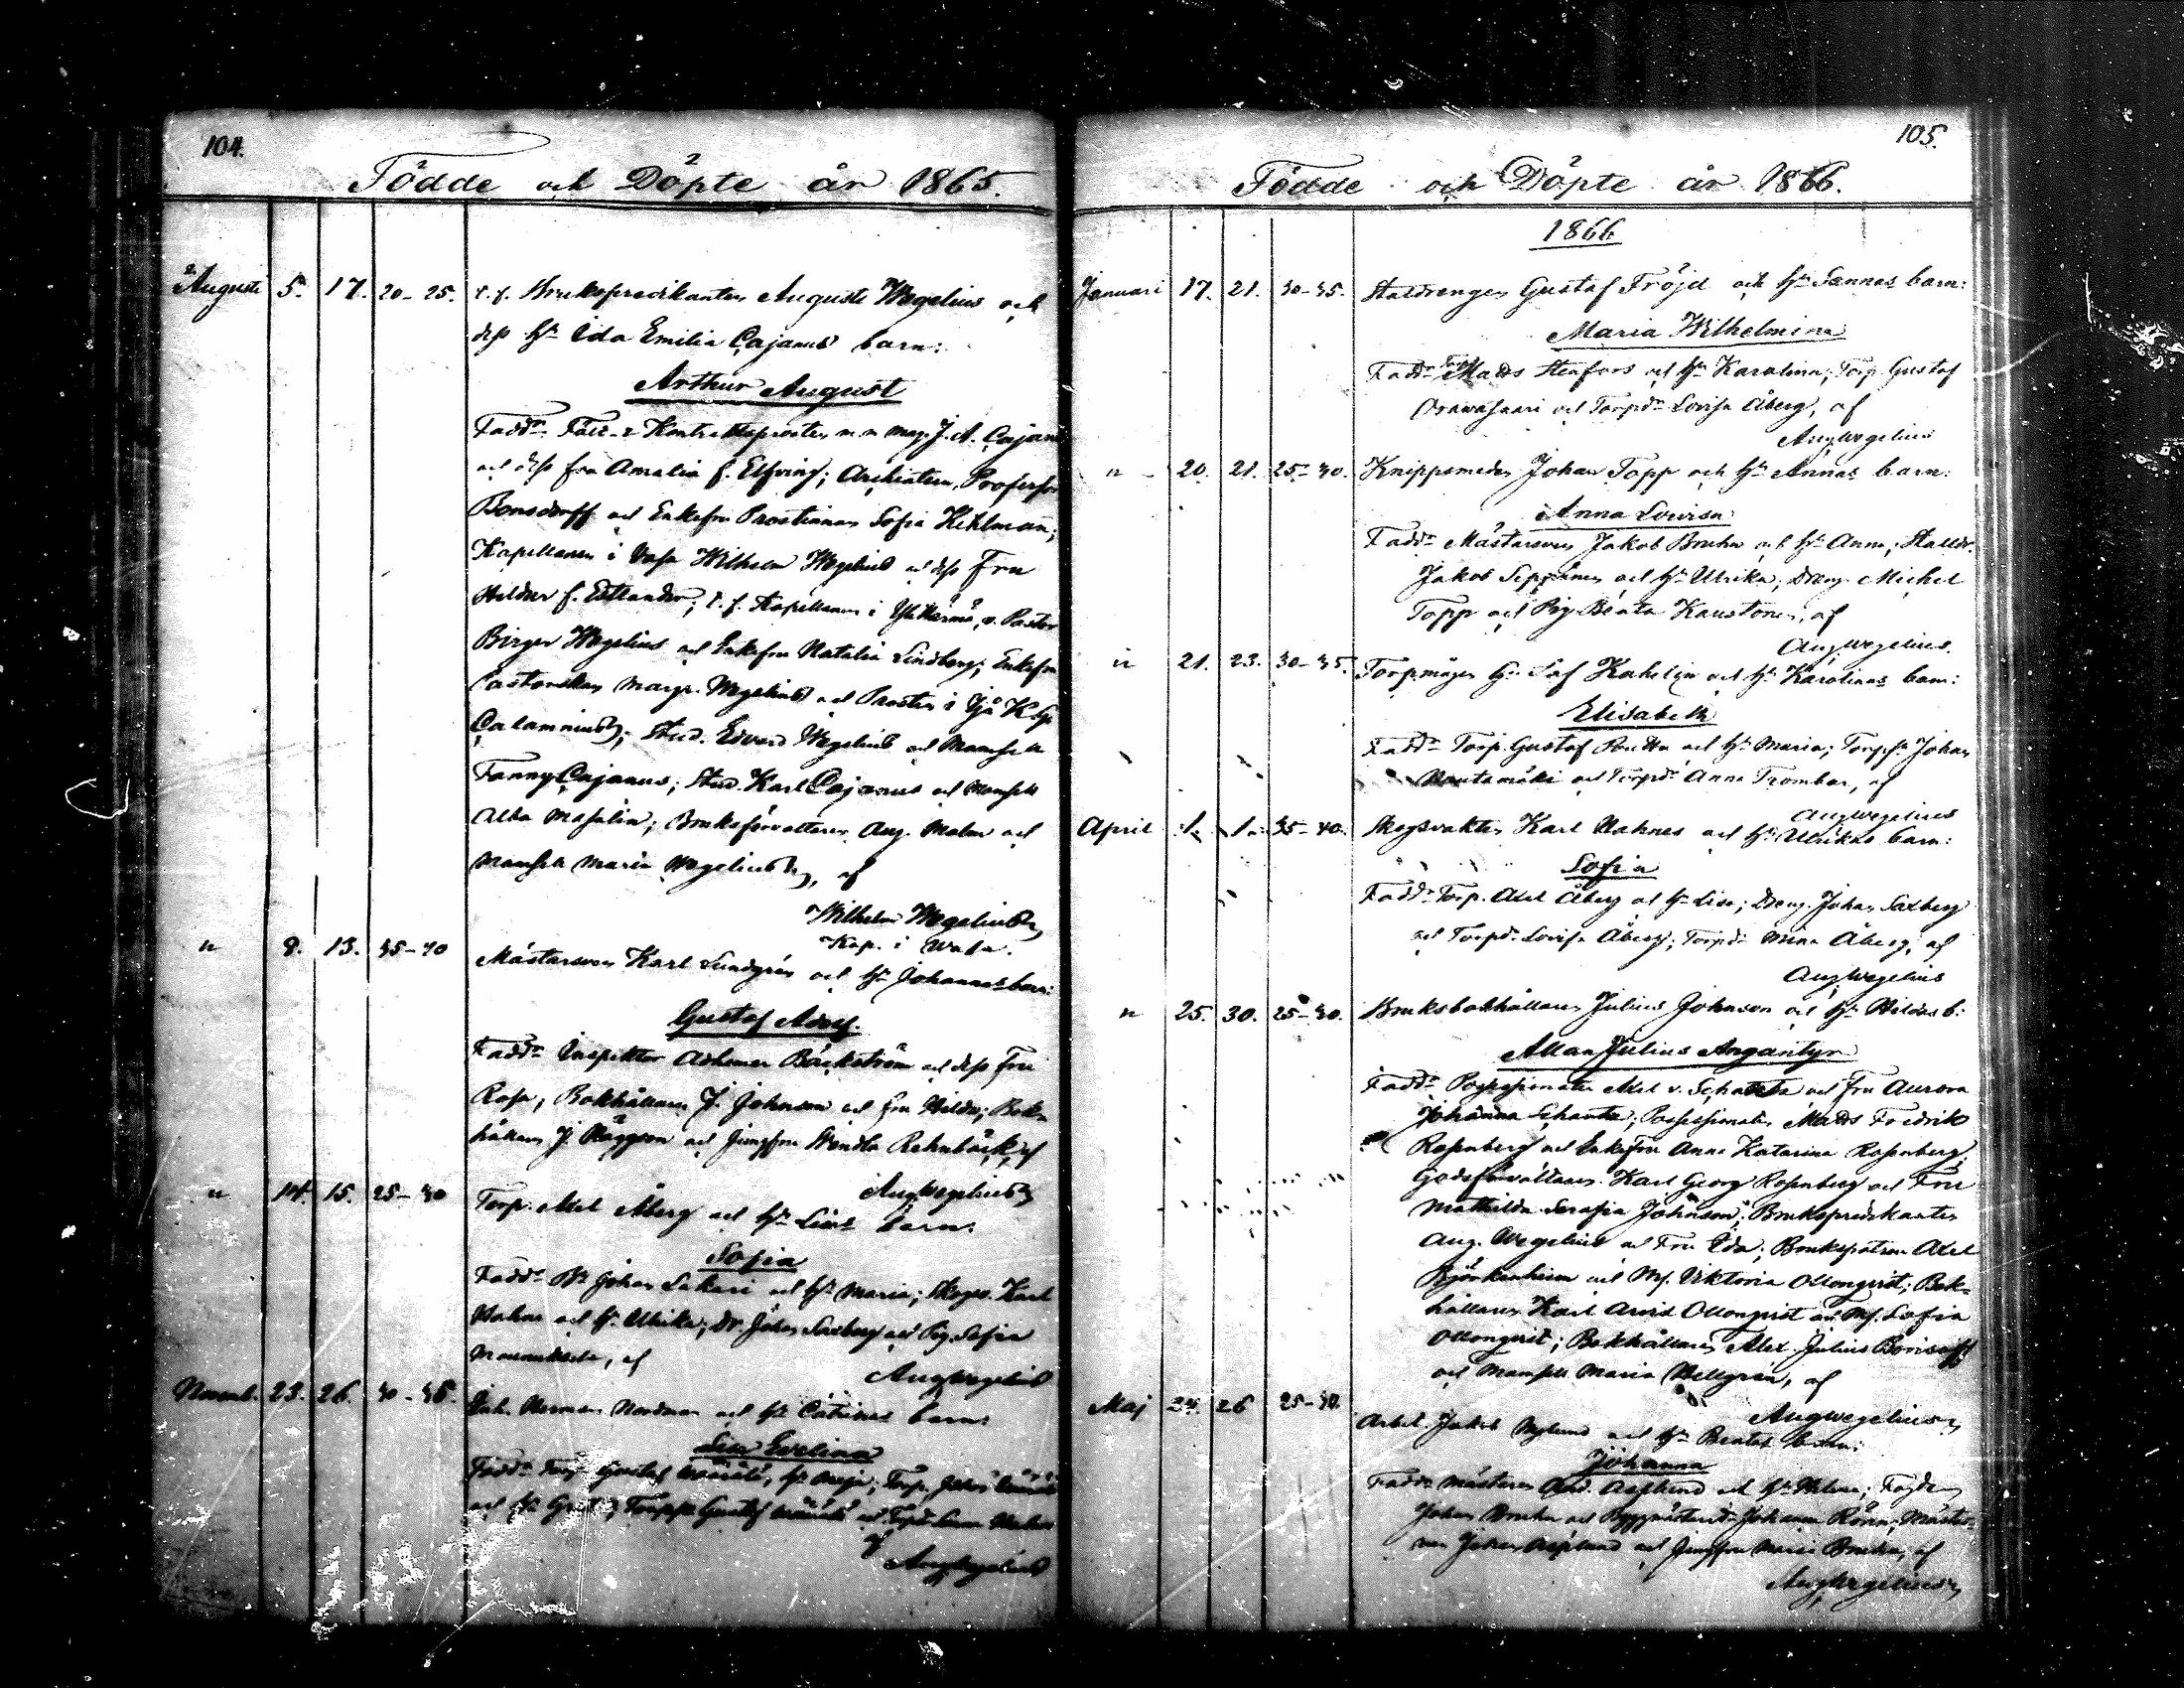 104.
Födde och Döpte år 1865.
Augusti 5. 17. 20-25. t.f. Brukspredikanten Augusti Wegelius och
dess hu Ida Emilia Cajanus barn:
Arthur August
Faddr Kontraktsprosten m.m. Mag. J. A. Cajan
och dess fru Amalia f. Elfving; Archiatern, Professor
Bonsdorff och Enkefru Prostinnan Sofia Kihlman;
Kapellanen i Vasa Wilhelm Wegelius och dess Fru
Hilda f. Estlander; t.f. Kapellanen i v. Pastor
Birger Wegelius och Enkefru Natalia Lindberg; Enkefru
Pastorskan Margr. Wegelius och Prosten i
Calamnius; Stud. Edvard Wegelius och Mamsell
Fanny Cajanus; Stud. Karl Cajanus och Mamsell
Alba Masalin; Bruksförvaltaren Aug. Malm och
Mamsell Maria Wegelius, af
Wilhelm Wegelius
Kap. i Wasa.
" 9. 13. 35-40 Mästarsven Karl Lundgrén och hu Johannas barn:
Gustaf Adolf.
Faddr Inspektor Backström och dess Fru
Rosa, Bokhållaren J. Johnson och Fru Hilda; Bok-
hållaren J. Häggron och Jungfru Wendla Rehnbäck, af
AugWegelius
" 14. 15. 25-30 Torp. Axel Åberg och hu Lisas barn:
Sofia
Faddr Johan Lakari och hu Maria; Skogsv. Karl
Hahne och hu Ulrika; Dr. Johan Saxberg och Pig. Sofia
af
AugWegelius
Novemb. 23. 26. 30-35. Herman Nordman och hu Catrinas barn:
Lisa Evelina
Faddr Gustaf hu Maja; Torp. Johan
och hu Greta; Gustaf och
af
AugWegelius
105.
Födde och Döpte år 1866.
1866
Januari 17. 21. 30-35. Stalldrengen Gustaf Fröjd och hu Sannas barn:
Maria Wilhelmina
Faddr Matts Stenfors och hu Karolina; Torp. Gustaf
Orawasaari och Torpdr Lovisa Åberg, af
AugWegelius
" 20. 21. 25-30. Knippsmeden Johan Topp och hu Annas barn:
Anna Lovisa
Faddr Mästarsven Jakob Bruhn och hu Anna; Stalldr.
Jakob Seppänen och hu Ulrika; Dreng. Michel
Topp och Pig. Beata Kaustonen, af
AugWegelius.
" 21. 23. 30-35. Torpmågen och hu Karolinas barn:
Elisabeth
Faddr Torp. Gustaf och hu Maria; Johan
Rautamäki och Torpdr Anna Trombar, af
AugWegelius
April 1. 1. 35-40. Skogsvakten Karl Hahnes och hu Ulrikas barn:
Sofia
Faddr Torp. Axel Åberg och hu Lisa; Dreng. Johan Saxberg
och Torpdr Lovisa Åberg; Torpdr Mina Åberg, af
AugWegelius
" 25. 30. 25-30. Bruksbokhållaren Julius Johnson och hu Hildas b:
Allan Julius Angantyr
Faddr Possessionaten Axel v. Schantz och Fru Aurora
Johanna Schantz; Possessionaten Matts Fredrik
Rosenberg och Enkefru Anna Katarina Rosenberg;
Godsförvaltaren Karl Georg Rosenberg och Fru
Mathilda Serafia Johnson; Brukspredikanten
Aug. Wegelius och Fru Ida; Brukspatron Axel
Björkenheim och Mll. Viktoria Ollonqvist; Bok-
hållaren Karl Arvid Ollonqvist och Mll. Sofia
Ollonqvist; Bokhållaren Alex. Julius Borisoff
och Mamsell Maria Hellgrén, af
AugWegelius
Maj 24. 26 25-30. Arbet. Jakob Nylund och hu Beatas barn:
Johanna
Faddr Mästaren And. Asplund och hu Helena; Fogden
Johan Bruhn och Johanna Rönn; Mästar-
Johan Asplund och Jungfru Maria Bruhn, af
AugWegelius